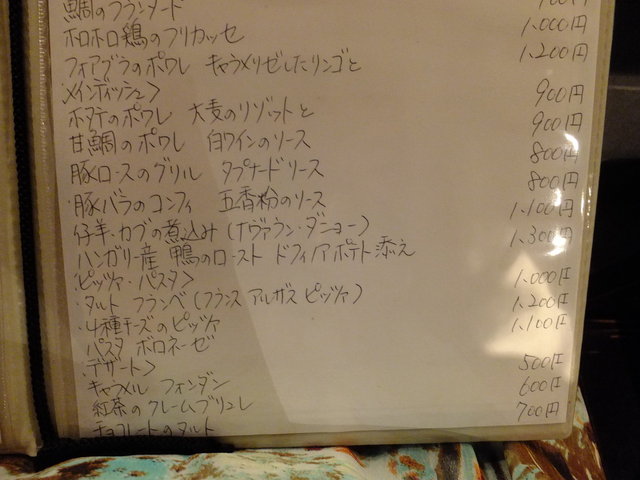 鯛のブランダード
ホロホロ鶏のフリカッセ 1,000円
フォアグラのポワレ キャラメリゼしたリンゴと 1,200円
メインディッシュ>
ホタテのポワレ 大麦のリゾットと 900円
甘鯛のポワレ 白ワインのソース 900円
豚ロースのグリル タプナードソース 800円
・豚バラのコンフィ 五香粉のソース 800円
仔羊・カブの煮込み(ナヴァラン・ダニョー) 1,100円
ハンガリー産 鴨のロースト ドフィノアポテト添え 1,300円
ピッツァ・パスタ>
・タルト フランベ(フランス アルザス ピッツァ) 1,000円
・4種チーズのピッツァ 1,200円
パスタ ボロネーゼ 1,100円
デザート>
キャラメル フォンダン 500円
紅茶のクレームブリュレ 600円
チョコレートのタルト 700円